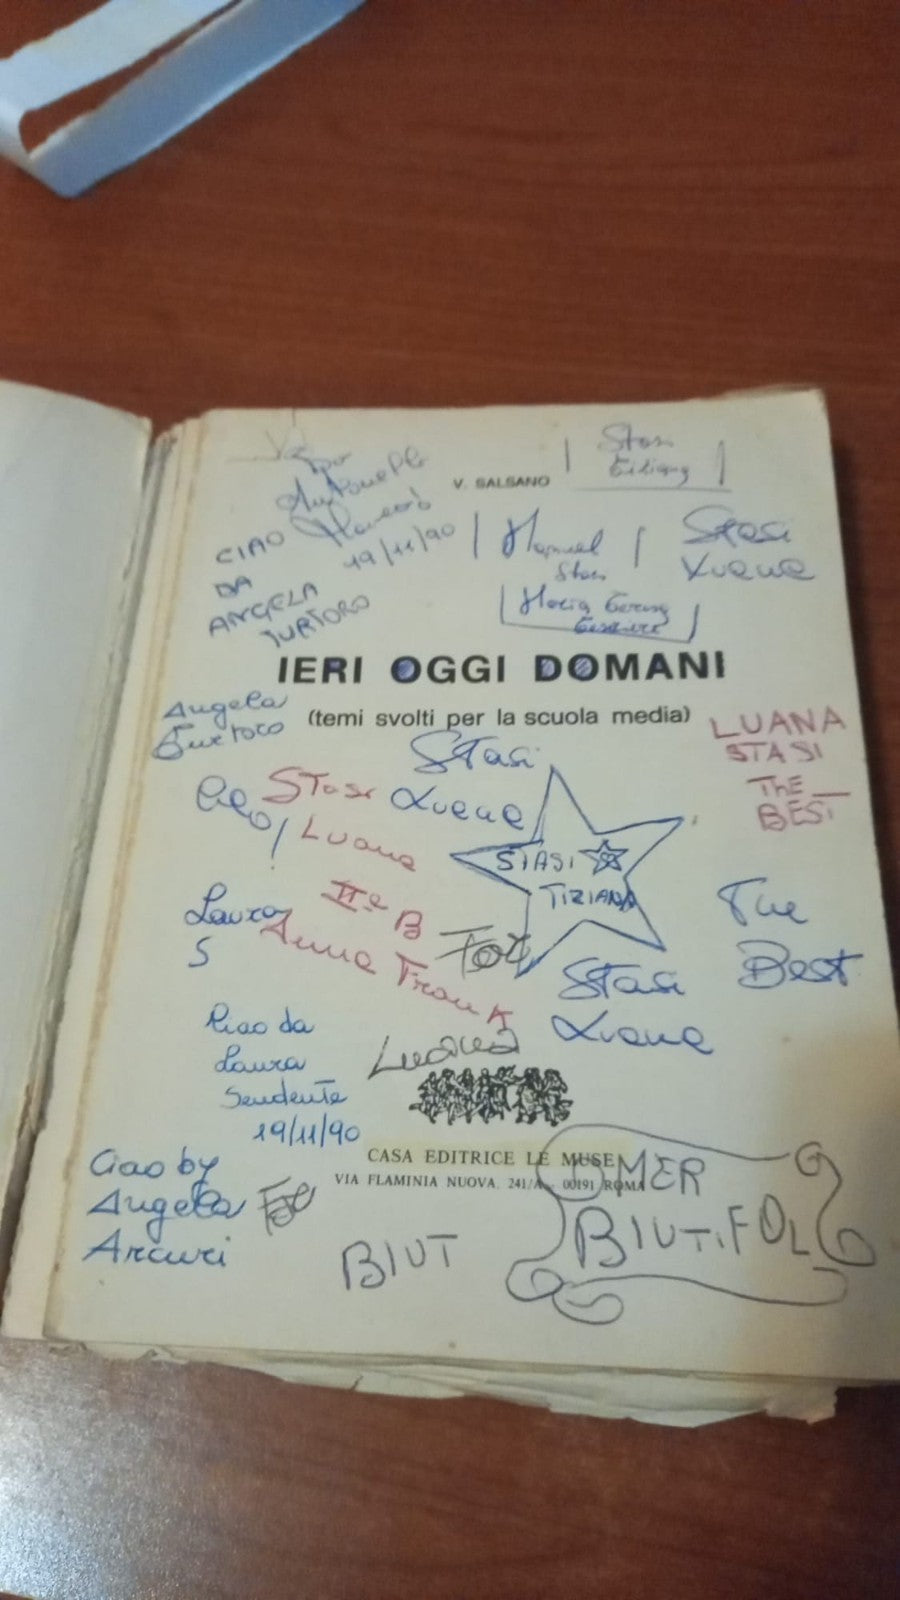 Stasi
Tiziana
V. SALSANO
Antonella
19/11/90
CIAO
DA
ANGELA
TURTORO
Manuel
Stasi
Stasi
Luana
Maria
IERI OGGI DOMANI
(temi svolti per la scuola media)
Angela
Turtoro
LUANA
STASI
ThE
BEST
Stasi
Luana
Stasi
Luana
Ciao!
STASI
TIZIANA
IIª B
Anna Frank
Laura
S
The
Best
Stasi
Luana
Ciao da
Laura
Sendente
19/11/90
CASA EDITRICE LE MUSE
VIA FLAMINIA NUOVA, 241/A - 00191 ROMA
Ciao by
Angela
Arcuri
BIUT
OMER
BIUTIFOL